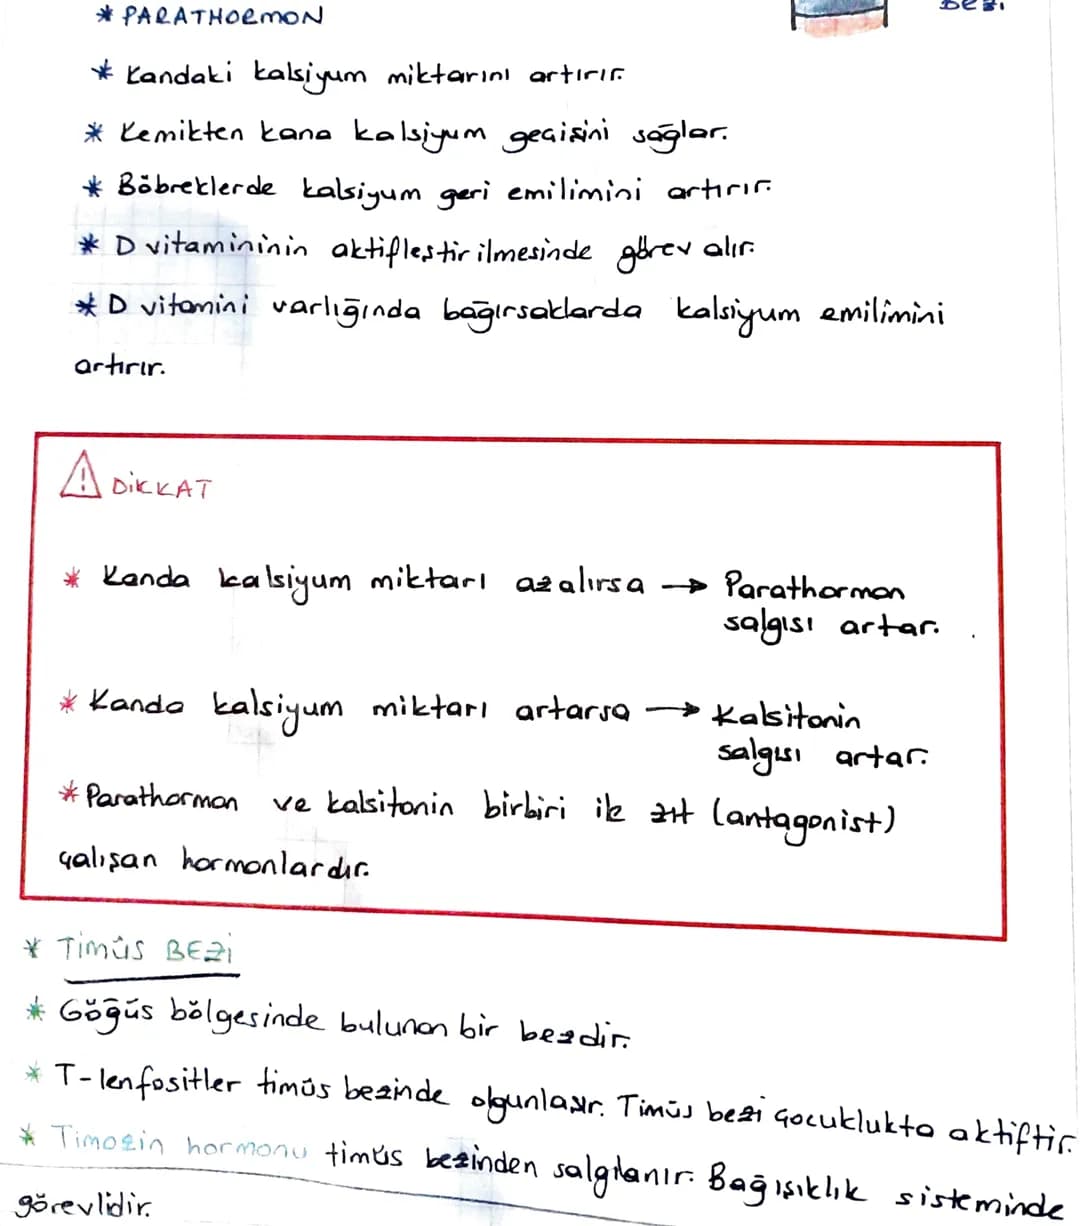 * PARATHORMON
Bezi
* Kandaki kalsiyum miktarını artırır.
* Kemikten kana kalsiyum geçişini sağlar.
* Böbreklerde kalsiyum geri emilimini artırır.
* D vitamininin aktifleştirilmesinde görev alır.
* D vitamini varlığında bağırsaklarda kalsiyum emilimini
artırır.
! DİKKAT
* Kanda kalsiyum miktarı azalırsa → Parathormon
salgısı artar.
* Kanda kalsiyum miktarı artarsa → Kalsitonin
salgısı artar.
* Parathormon ve kalsitonin birbiri ile zıt (antagonist)
çalışan hormonlardır.
* TİMÜS BEZİ
* Göğüs bölgesinde bulunan bir bezdir.
* T-lenfositler timüs bezinde olgunlaşır. Timüs bezi çocuklukta aktiftir.
* Timozin hormonu timüs bezinden salgılanır. Bağışıklık sisteminde
görevlidir.